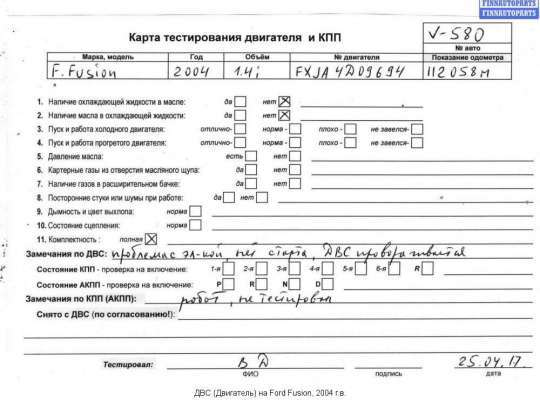 FINNAUTOPARTS
FINNAUTOPARTS
Карта тестирования двигателя и КПП
V-580
№ авто
Марка, модель Год Объём № двигателя Показание одометра
F. Fusion 2004 1.4i FXJA 4D09694 112058м
1. Наличие охлаждающей жидкости в масле: да нет
2. Наличие масла в охлаждающей жидкости: да нет
3. Пуск и работа холодного двигателя: отлично- норма - плохо - не завелся-
4. Пуск и работа прогретого двигателя: отлично- норма - плохо - не завелся-
5. Давление масла: есть нет
6. Картерные газы из отверстия масляного щупа: да нет
7. Наличие газов в расширительном бачке: да нет
8. Посторонние стуки или шумы при работе: да нет
9. Дымность и цвет выхлопа: норма
10. Состояние сцепления: норма
11. Комплектность : полная
Замечания по ДВС: проблема с эл-кой, нет старта, ДВС проворачивается
Состояние КПП - проверка на включение: 1-я 2-я 3-я 4-я 5-я 6-я R
Состояние АКПП - проверка на включение: P R N D
Замечания по КПП (АКПП): робот, не тестирован
Снято с ДВС (по согласованию!):
Тестировал: В Д 25.04.17.
ФИО подпись дата
ДВС (Двигатель) на Ford Fusion, 2004 г.в.